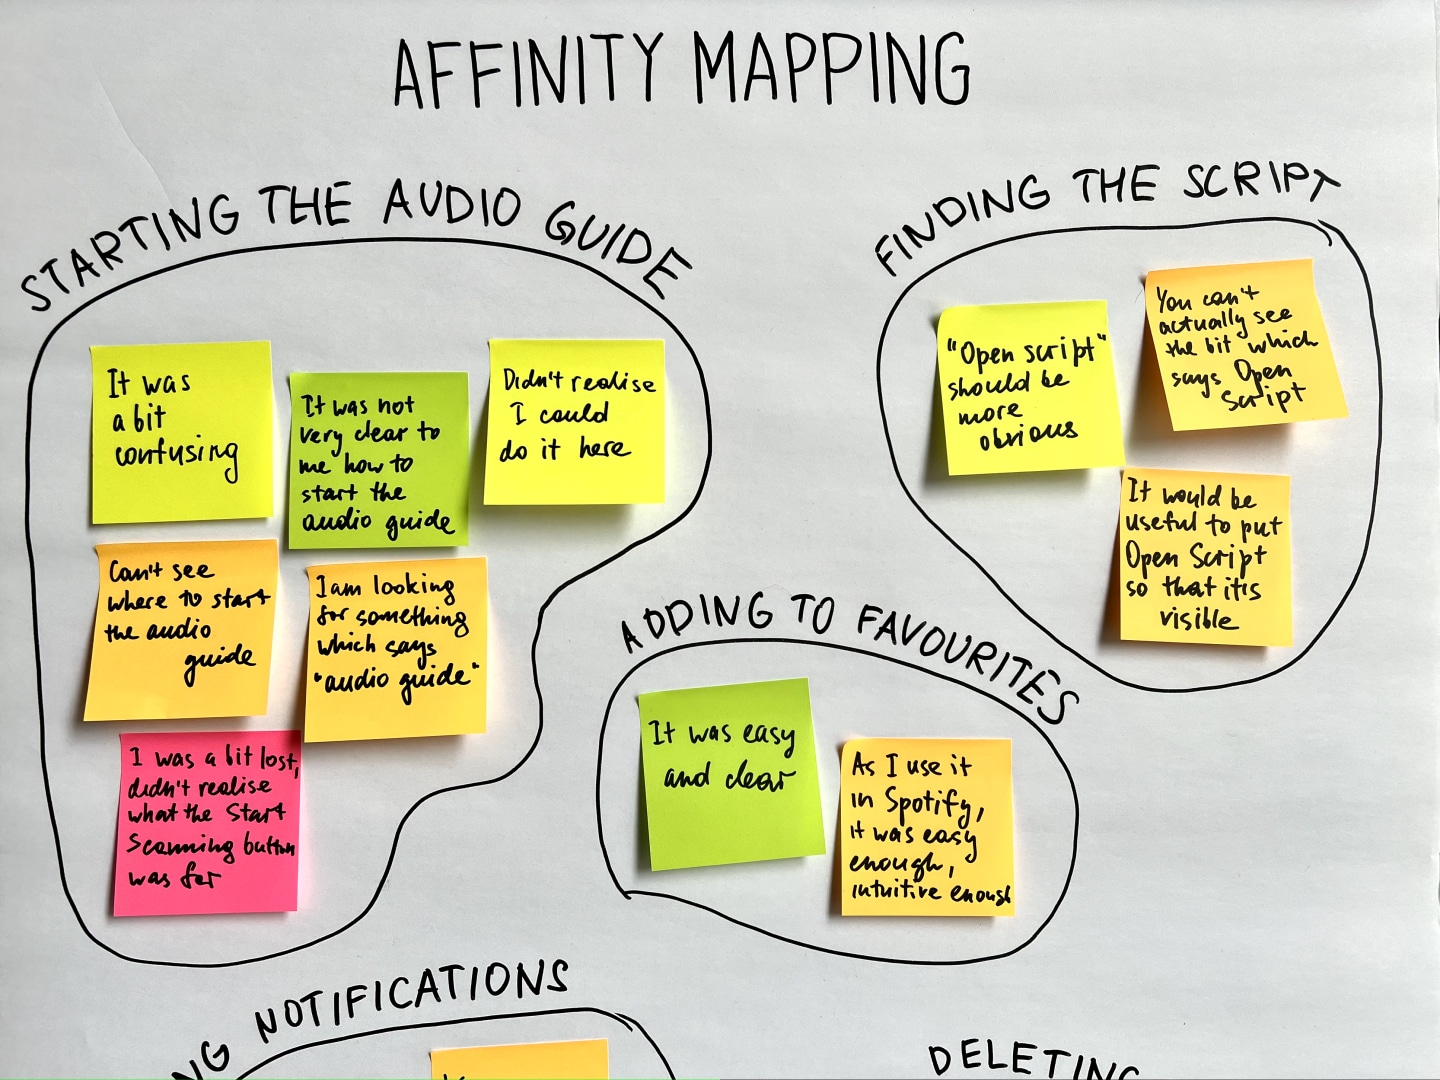 AFFINITY MAPPING
STARTING THE AUDIO GUIDE
It was
a bit
confusing
It was not
very clear to
me how to
start the
audio guide
Didn't realise
I could
do it here
Can't see
where to start
the audio
guide
I am looking
for something
which says
"audio guide"
I was a bit lost,
didn't realise
what the Start
Scanning button
was for
FINDING THE SCRIPT
"Open script"
should be
more
obvious
You can't
actually see
the bit which
says Open
Script
It would be
useful to put
Open Script
so that it's
visible
ADDING TO FAVOURITES
It was easy
and clear
As I use it
in Spotify,
it was easy
enough,
intuitive enough
NOTIFICATIONS
DELETING